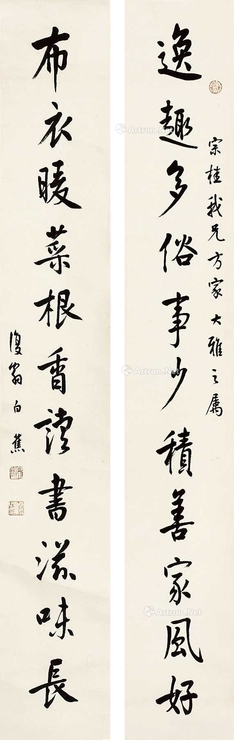 逸趣多俗事少積善家風好
宗桂我兄方家大雅之属
布衣暖菜根香讀書滋味長
復翁白蕉